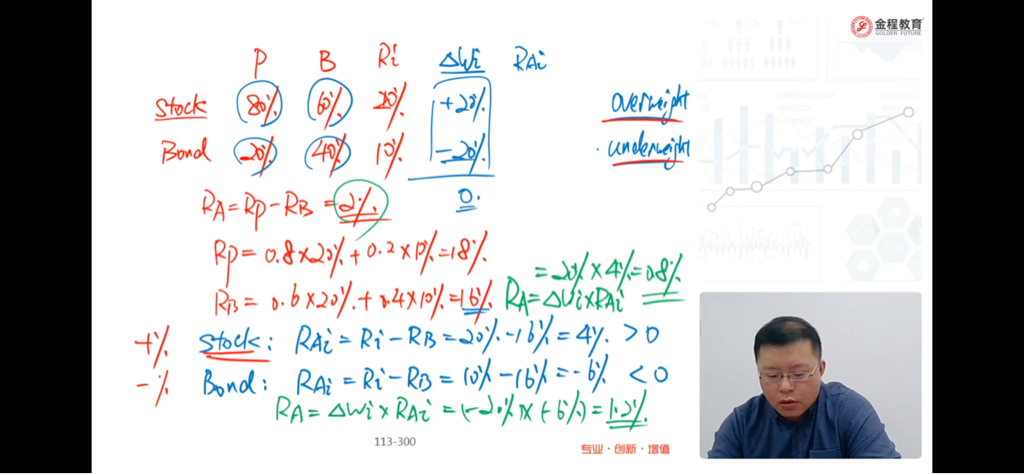 金程教育
GOLDEN FUTURE
P B Ri ΔWi RAi
Stock 80% 60% 20% +20% overweight
Bond 20% 40% 10% -20% underweight
RA=RP-RB=2% 0.
RP=0.8×20%+0.2×10%=18%
=20%×4%=0.8%
RB=0.6×20%+0.4×10%=16% RA=ΔWi×RAi
+% Stock: RAi=Ri-RB=20%-16%=4%>0
-% Bond: RAi=Ri-RB=10%-16%=-6%<0
RA=ΔWi×RAi=(-20%)×(-6%)=1.2%
113-300
专业·创新·增值